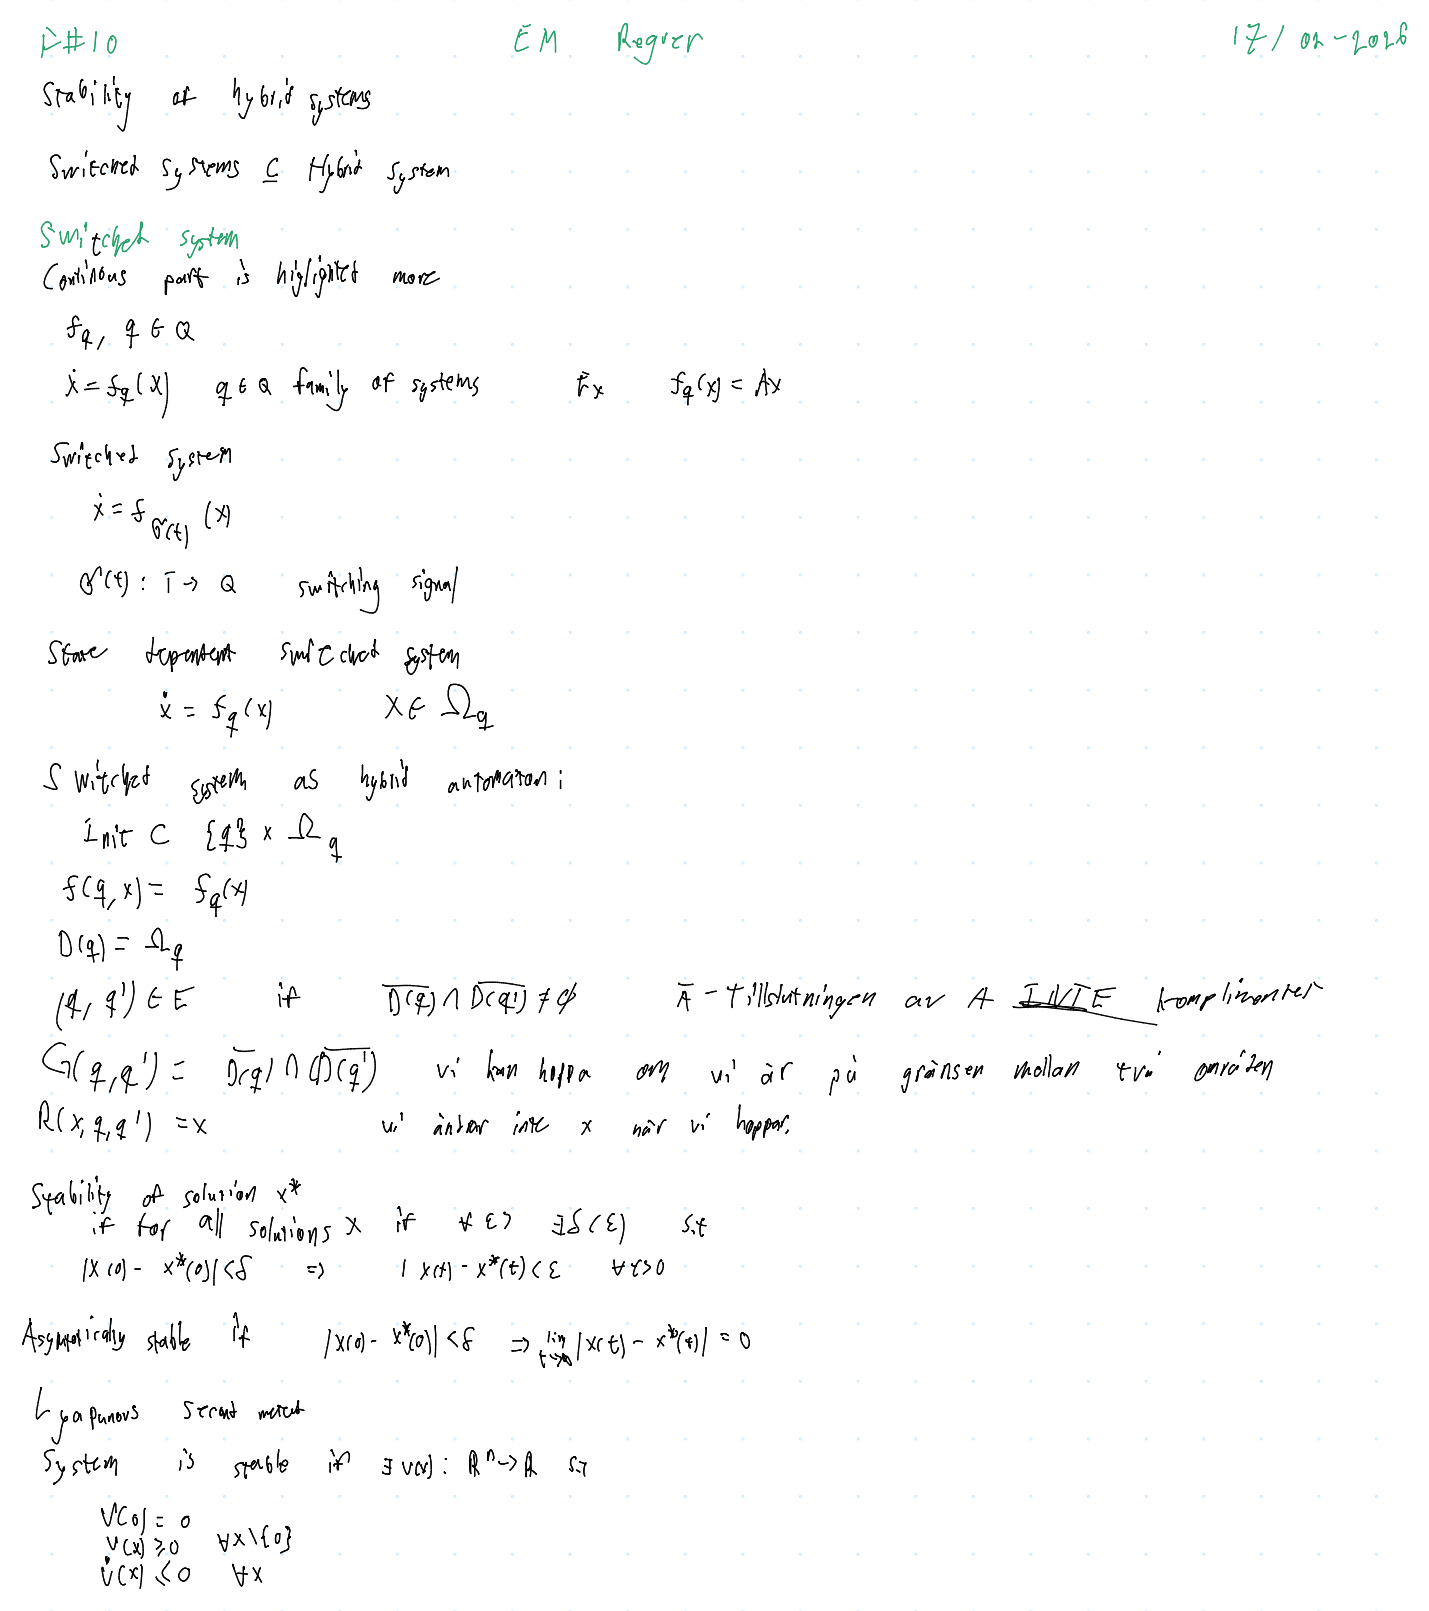 F#10 EM Regler 17/02-2026
Stability of hybrid systems
Switched systems ⊆ Hybrid system
Switched system
Continous part is higlighted more
f_q, q ∈ Q
ẋ = f_q(x) q ∈ Q family of systems Ex f_q(x) = Ax
Switched system
ẋ = f_σ(t) (x)
σ(t) : T → Q switching signal
State dependent switched system
ẋ = f_q(x) x ∈ Ω_q
Switched system as hybrid automaton:
Init ⊂ {q} × Ω_q
f(q,x) = f_q(x)
D(q) = Ω_q
(q, q') ∈ E if \overline{D(q)} ∩ \overline{D(q')} ≠ ∅ Ā - Tillslutningen av A INTE komplimentet
G(q,q') = \overline{D(q)} ∩ \overline{D(q')} vi kan hoppa om vi är på gränsen mellan två områden
R(x,q,q') = x vi ändrar inte x när vi hoppar.
Stability of solution x*
if for all solutions x if ∀ ε> ∃δ(ε) s.t
|x(0) - x*(0)| < δ => | x(t) - x*(t) < ε ∀t>0
stable if |x(0) - x*(0)| < δ => lim_{t→∞} |x(t) - x*(t)| = 0
Lyapunovs
System is stable if ∃ V(x) : R^n → R s.t
V(0) = 0
V(x) ≥ 0 ∀x\{0}
V̇(x) ≤ 0 ∀x